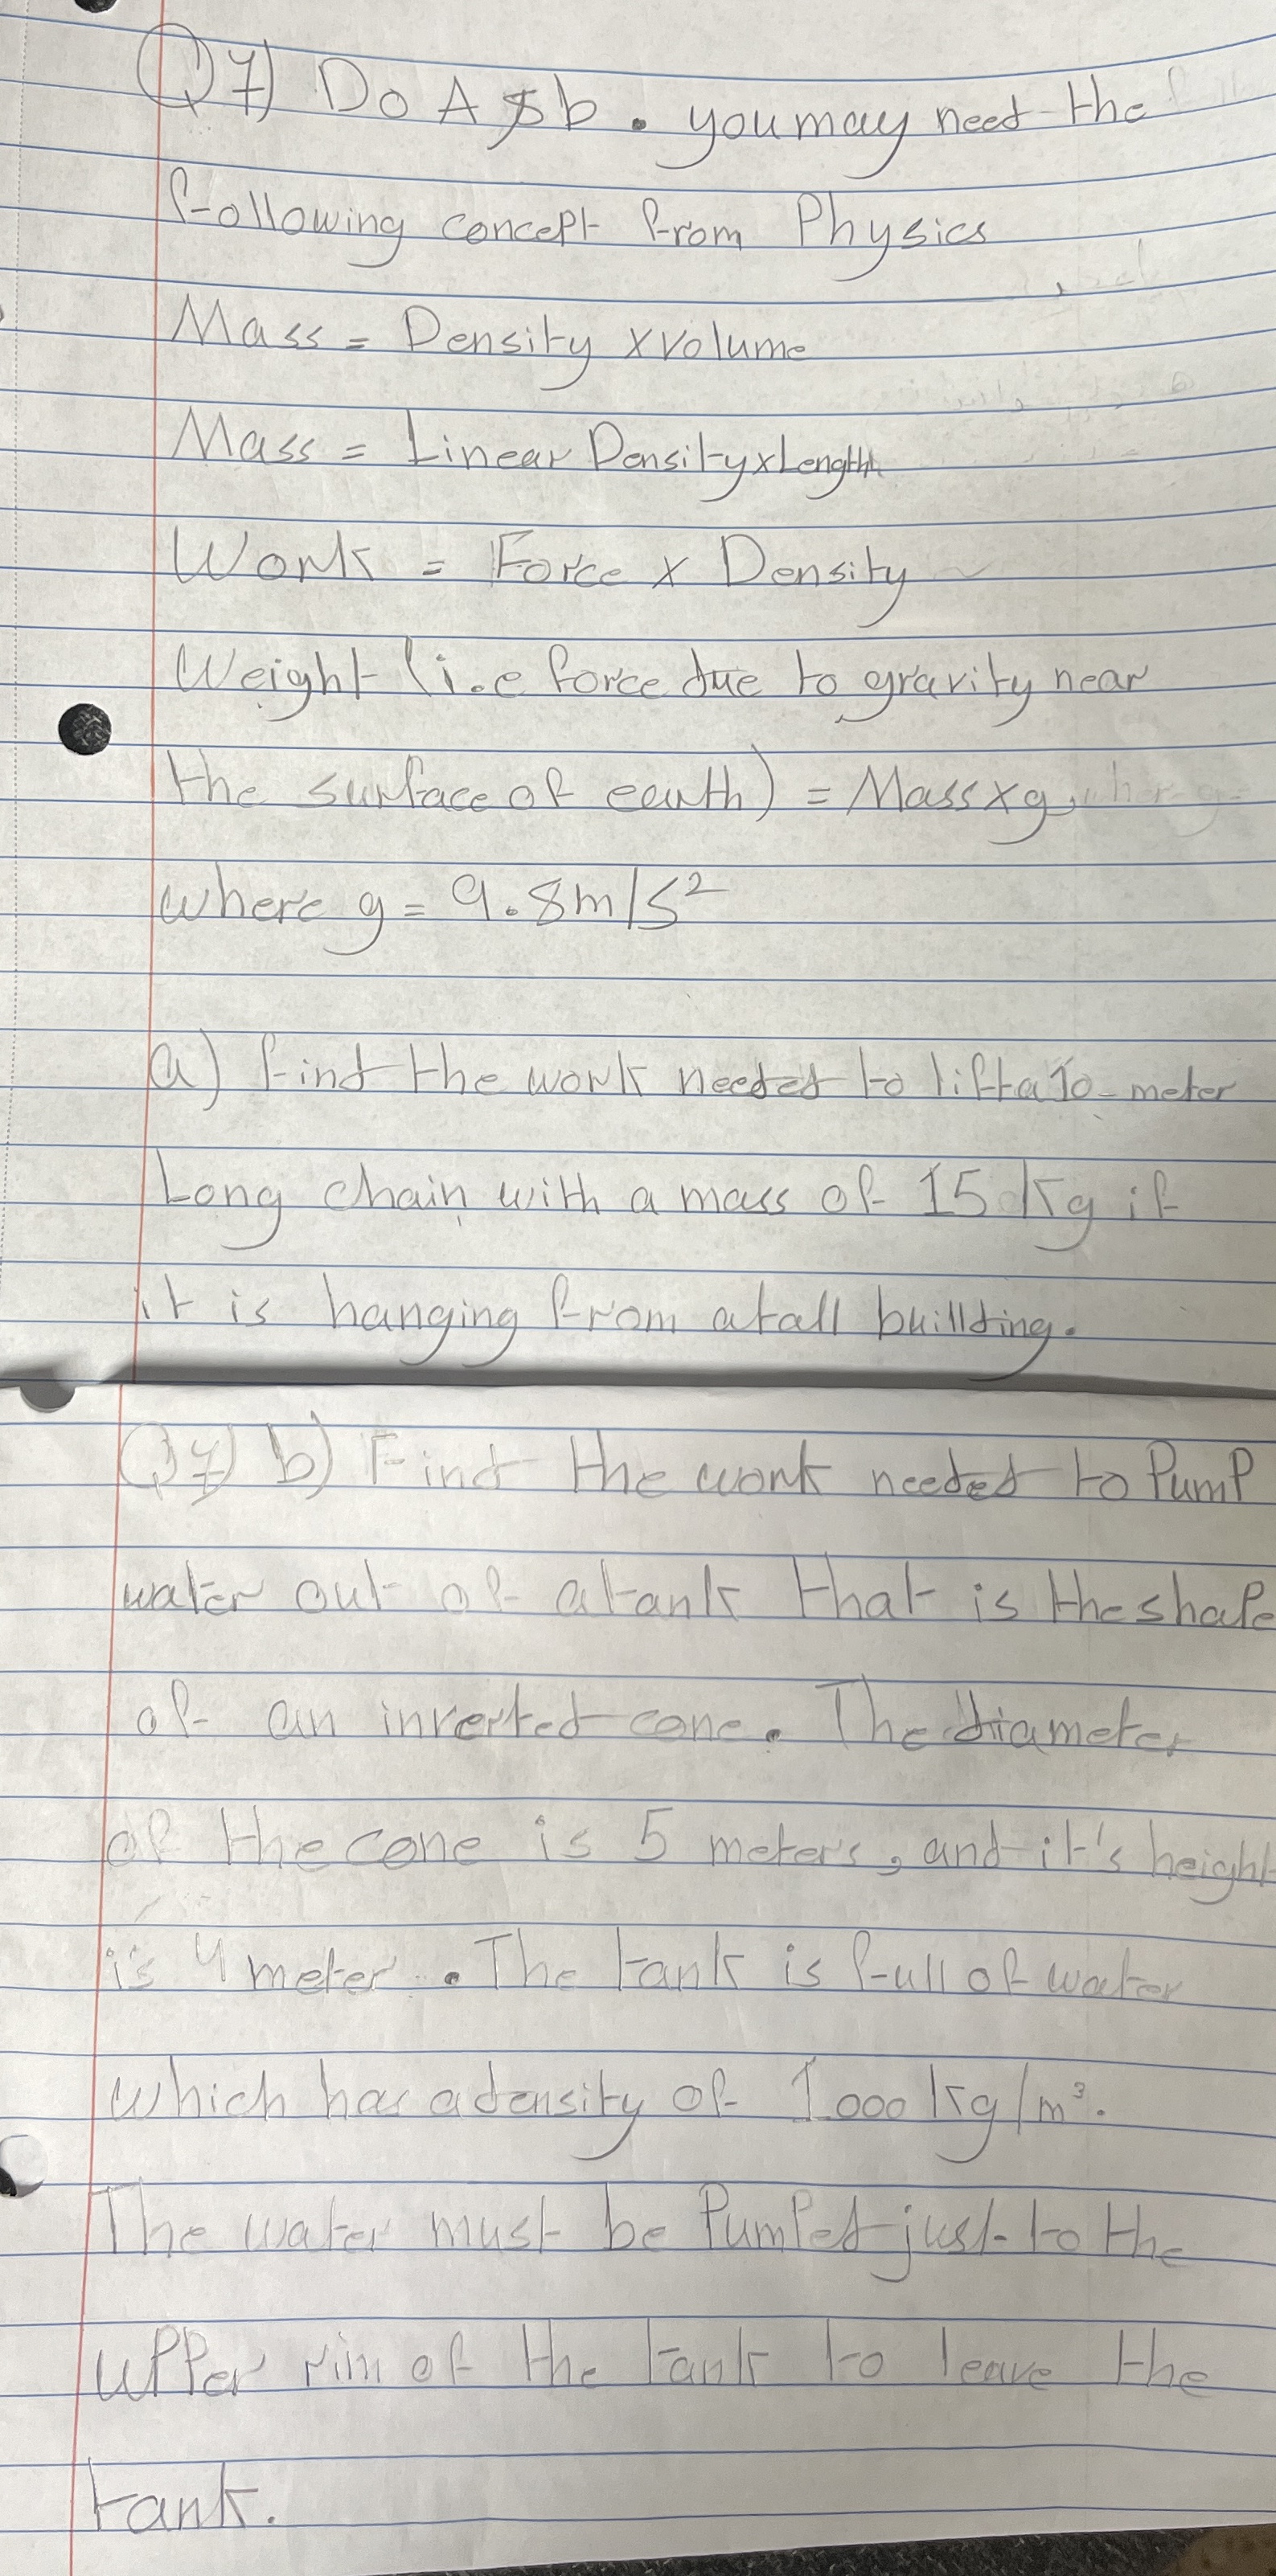 Q7) Do A & b. you may need the
following concept from Physics
Mass = Density x volume
Mass = Linear Density x Length
Work = Force x Density
Weight (i.e force due to gravity near
the surface of earth) = Mass x g,
where g = 9.8m/s²
a) find the work needed to lift a 10-meter
Long chain with a mass of 15 Kg if
it is hanging from a tall buillding.
Q7) b) Find the work needed to PumP
water out of a tank that is the shaPe
of an inverted cone. The diameter
of the cone is 5 meters, and it's height
is 4 meter. The tank is full of water
which has a density of 1000 kg/m³.
The water must be PumPed just to the
uPPer rim of the tank to leave the
tank.